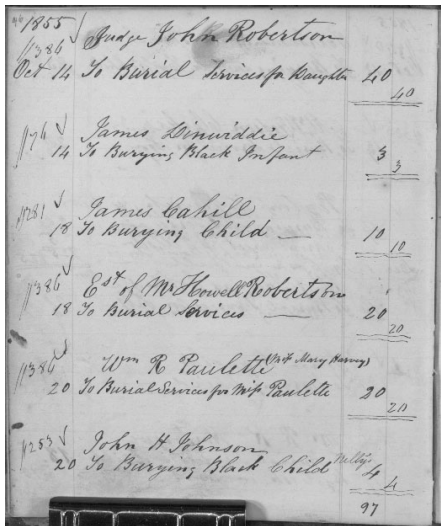 1855
1386 Judge John Robertson
Oct 14 To Burial Services for Daughter 40
40
1176 James Dinwiddie
14 To Burying Black Infant 3
3
James Cahill
18 To Burying Child — 10
10
1386 Est of Mr Howell Robertson
18 To Burial Services — 20
20
1386 Wm R Paulette (Mary Harvey)
20 To Burial Services for Miss Paulette 20
20
1253 John H Johnson
20 To Burying Black Child Nelly's 4
4
97